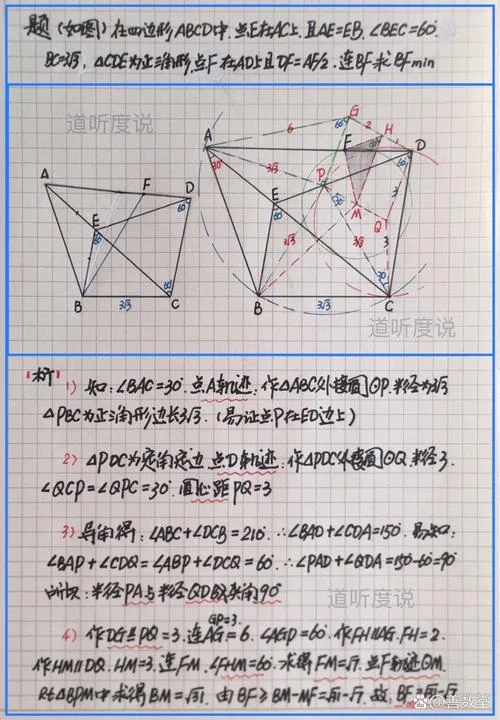 题(如图)在四边形ABCD中.点E在AC上.且AE=EB,∠BEC=60°.
BC=3√3,△CDE为正三角形,点F在AD上且DF=AF/2.连BF求BFmin
道听度说
A
F
D
E
60°
60°
B
3√3
C
G
60°
2
H
6
A
F
60°
D
30°
3√3
60°
P
E
30°
3
60°
M
Q
3√3
3√3
3
30°
B
3√3
C
道听度说
「析」
1) 知:∠BAC=30°.点A轨迹:作△ABC外接圆⊙P.半径为3√3
△PBC为正三角形边长3√3.(易证点P在ED边上)
2) △PDC为定角定边.点D轨迹:作△PDC外接圆⊙Q.半径3.
∠QCP=∠QPC=30°.圆心距PQ=3
3) 导角得:∠ABC+∠DCB=210°.∴∠BAD+∠CDA=150°.易知:
∠BAP+∠CDQ=∠ABP+∠DCQ=60°.∴∠PAD+∠QDA=150-60=90°
所以:半径PA与半径QD的夹角90°
道听度说
GP=3.
4) 作DG⫽DQ=3.连AG=6.∠AGP=60°.作FH∥AG.FH=2.
作HM∥DQ.HM=3.连FM.∠FHM=60°.求得FM=√7.点F轨迹⊙M.
Rt△BPM中求得BM=√31.由BF≥BM-MF=√31-√7.故:BF≥√31-√7
@善数堂